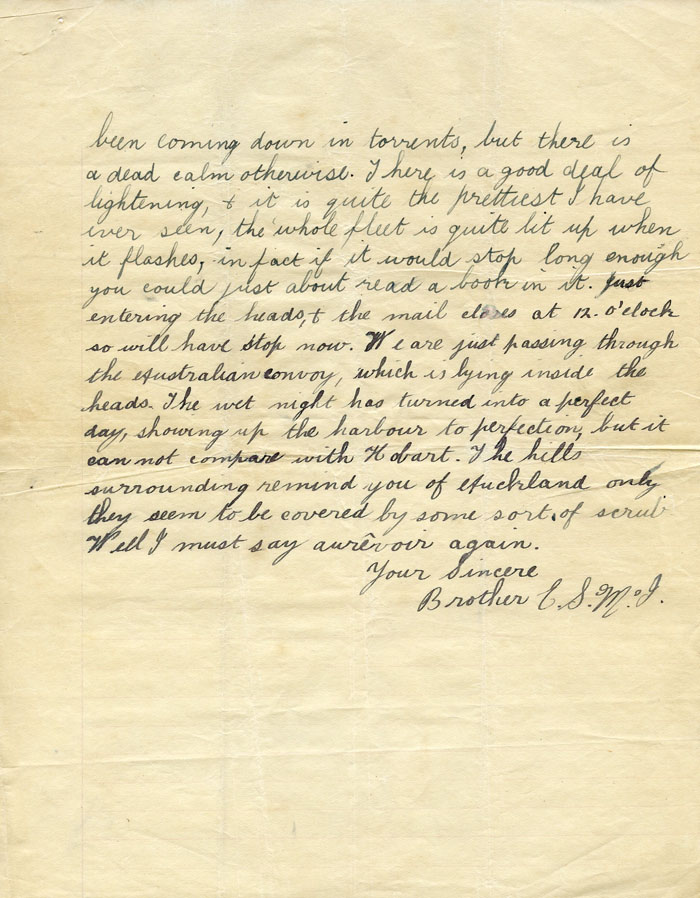 been coming down in torrents, but there is
a dead calm otherwise. There is a good deal of
lightening, & it is quite the prettiest I have
ever seen, the whole fleet is quite lit up when
it flashes, in fact if it would stop long enough
you could just about read a book in it. Just
entering the heads, & the mail closes at 12. o'clock
so will have stop now. We are just passing through
the Australian convoy, which is lying inside the
heads. The wet night has turned into a perfect
day, showing up the harbour to perfection, but it
can not compare with Hobart. The hills
surrounding remind you of Auckland only
they seem to be covered by some sort of scrub
Well I must say aurêvoir again.
Your Sincere
Brother C. S. McJ.